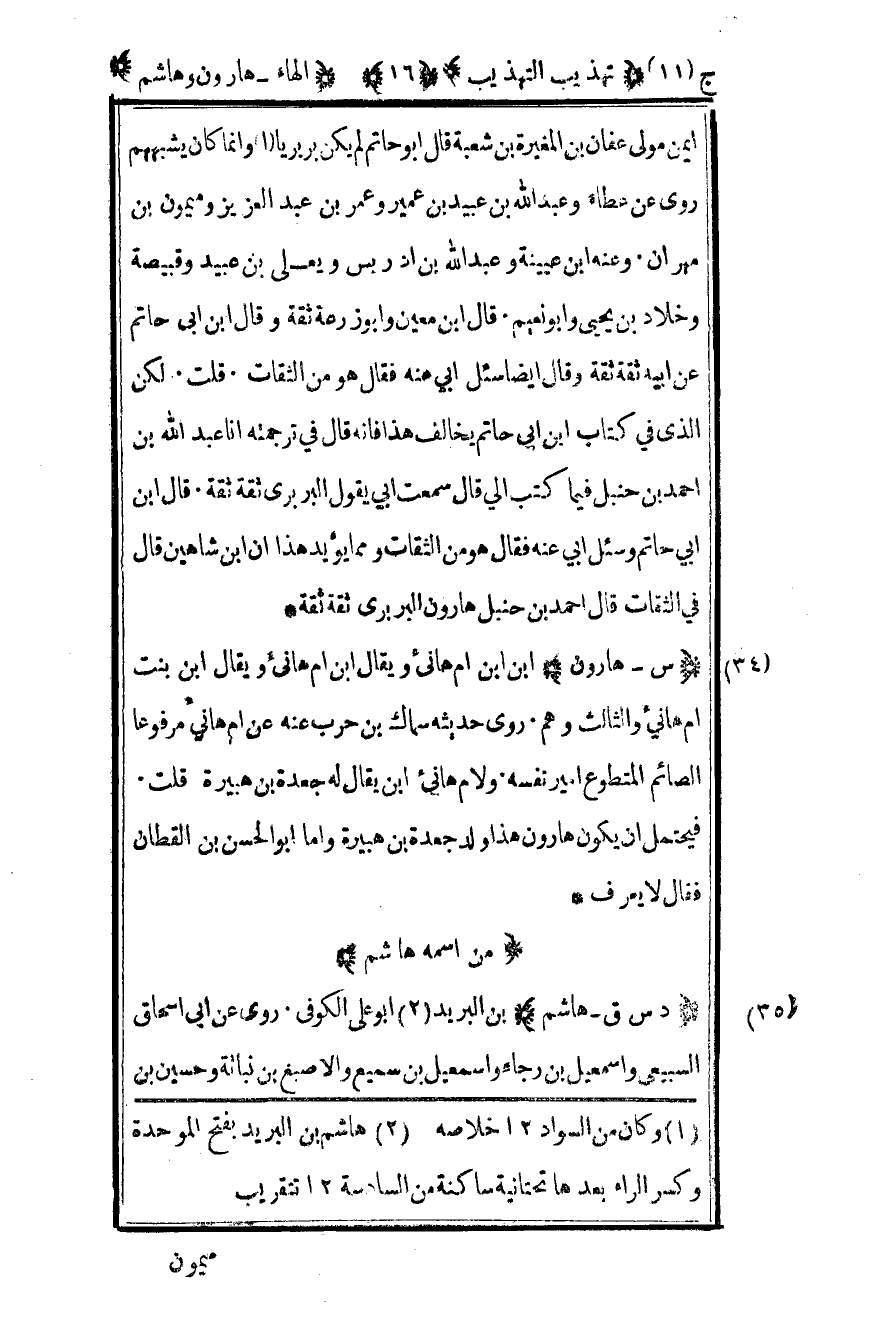 ج (١١) ﴿ تهذيب التهذيب ﴾ ﴿١٦﴾ ﴿ الهاء - هارون وهاشم ﴾
ايمن مولى عفان بن المغيرة بن شعبة قال ابو حاتم لم يكن بربريا (١) وانما كان يشبههم
روى عن عطاء وعبد الله بن عبيد بن عمير وعمر بن عبد العزيز وميمون بن
مهران · وعنه ابن عيينة وعبد الله بن ادريس ويعلى بن عبيد وقبيصة
وخلاد بن يحيى وابو نعيم · قال ابن معين وابو زرعة ثقة وقال ابن ابى حاتم
عن ابيه ثقة ثقة وقال ايضا سئل ابي عنه فقال هو من الثقات · قلت · لكن
الذى في كتاب ابن ابي حاتم يخالف هذا فانه قال في ترجمته انا عبد الله بن
احمد بن حنبل فيما كتب الي قال سمعت ابي يقول البربرى ثقة ثقة · قال ابن
ابي حاتم وسئل ابي عنه فقال هو من الثقات ومما يؤيد هذا ان ابن شاهين قال
في الثقات قال احمد بن حنبل هارون البربرى ثقة ثقة *
(٣٤) ﴿ س - هارون ﴾ ابن ابن ام هانئ ويقال ابن ام هانئ ويقال ابن بنت
ام هانئ والثالث وهم · روى حديثه سماك بن حرب عنه عن ام هانئ مرفوعا
الصائم المتطوع امير نفسه · ولام هانئ ابن يقال له جعدة بن هبيرة قلت ·
فيحتمل ان يكون هارون هذا ولد جعدة بن هبيرة واما ابو الحسن بن القطان
فقال لا يعرف *
﴿ من اسمه هاشم ﴾
(٣٥) ﴿ د س ق - هاشم ﴾ بن البريد (٢) ابو على الكوفى · روى عن ابي اسحاق
السبيعي واسمعيل بن رجاء واسمعيل بن سميع والاصبغ بن نباتة وحسين بن
(١) وكان من السواد ١٢ خلاصه (٢) هاشم بن البريد بفتح الموحدة
وكسر الراء بعدها تحتانية ساكنة من السادسة ١٢ تقريب
ميمون